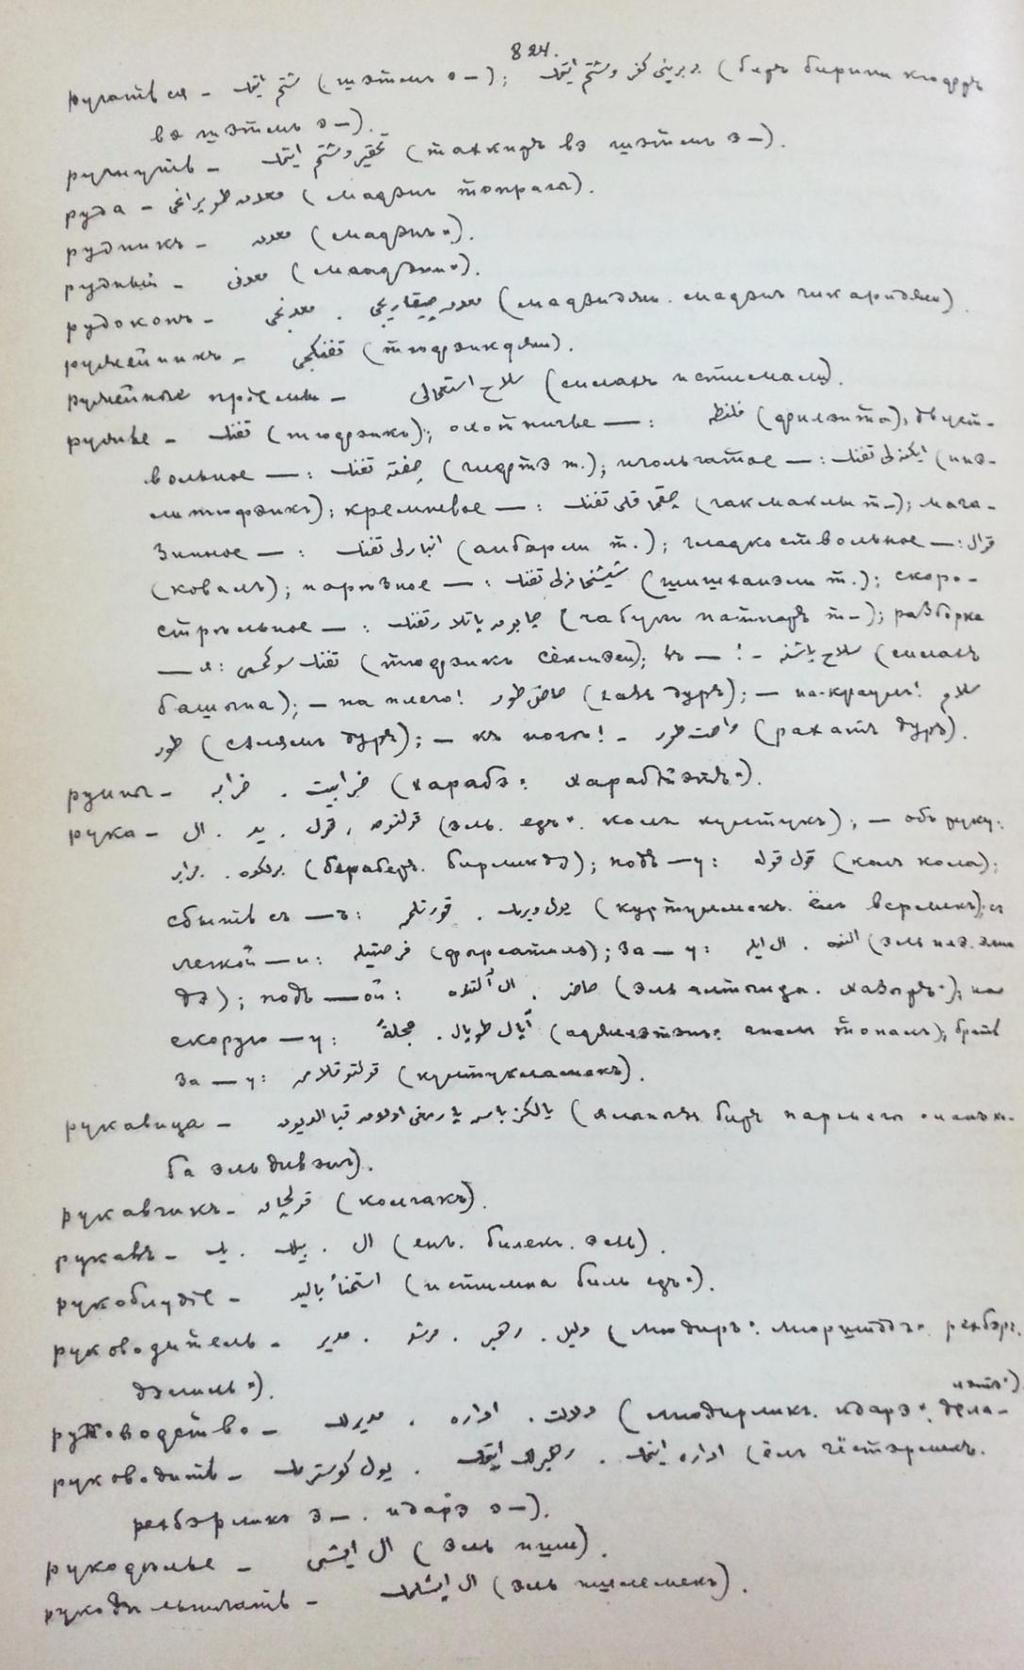 824.
ругаться - شتم ایتمك (шэтемъ э -); بربرینی كفر و شتم ایتمك (бирь бирини кюфръ
вэ шэтемъ э -).
ругнуть - تحقیر و شتم ایتمك (тахкиръ вэ шэтемъ э -).
руда - معدن طوپراغی (мадэнъ топрагы).
рудникъ - معدن (мадэнъ*).
рудный - معدنی (маадэни*).
рудокопъ - معدنجی . معدن چیقاریجی (мадэнджи. мадэнъ чикариджи).
ружейникъ - تفنكجی (тюфэнкджи).
ружейные пріемы - سلاح استعمالی (силахъ истималы).
ружье - تفنك (тюфэнкъ); охотничье —: فلنطه (филэнта); двуст-
вольное —: چفته تفنك (чифтэ т.); игольчатое —: ایكنه لی تفنك (инэ-
ли тюфэнкъ); кремневое —: چقماقلی تفنك (чакмаклы т-); мага-
зинное —: انبارلی تفنك (анбарлы т.); гладкоствольное —: قوال
(ковалъ); нарѣзное —: ششخانه لی تفنك (шишханэли т.); скоро-
стрѣльное —: چابوق پاتلار تفنك (чабукъ патларъ т-); разборка
— я: تفنك سوكمسی (тюфэнкъ сёкмэси); въ —! - سلاح باشنه (силахъ
башына); — на плечо! حاضر طور (хазъ дуръ); — на-краулъ! سلام
طور (селямъ дуръ); — къ ногѣ! - راحت طور (рахатъ дуръ).
руины - خرابه . خرابیت (харабэ: харабіэтъ*).
рука - ال . ید . قول , قولتوق (эль. едъ*. колъ култукъ); — объ руку:
برابر . برلكده (берабэръ. бирликдэ); подъ —у: قول قوله (колъ кола);
сбыть съ —ъ: قورتلمق . یول ویرمك (куртулмакъ. ёлъ вермекъ); съ
легкой —и: فرصتیله (фырсатилэ); за —у: ال ایله . النده (эль илэ. элин
дэ); подъ —ой: ال آلتنده . حاضر (эль алтында. хазыръ*); на
скорую —у: عجلةً . آپال طوپال (аджэлэтэнъ: апалъ топалъ); брать
за —у: قولتوقلامق (култукламакъ).
рукавица - یالكز باش پارمغی اولان قبا الدیون (ялынызъ бирь пармагы оланъ ка-
ба эльдивэнъ).
рукавчикъ - قولچاق (колчакъ).
рукавъ - یك . بیلك . ال (енъ. билекъ. эль).
рукоблудіе - استمناء بالید (истимна биль едъ*).
руководитель - مدیر . مرشد . رهبر . دلیل (мюдиръ*. мюршидъ*. рехбэръ.
дэлиль*).
руководство - مدیرلك . اداره . دلالت (мюдирликъ. идарэ*. дела-
летъ*)
руководить - یول كوسترمك . رهبرلك ایتمك . اداره ایتمك (ёлъ гёстэрмекъ.
рехбэрликъ э -. идарэ э -).
рукодѣлье - ال ایشی (эль иши).
рукодѣльничать - ال ایشلمك (эль ишлемекъ).